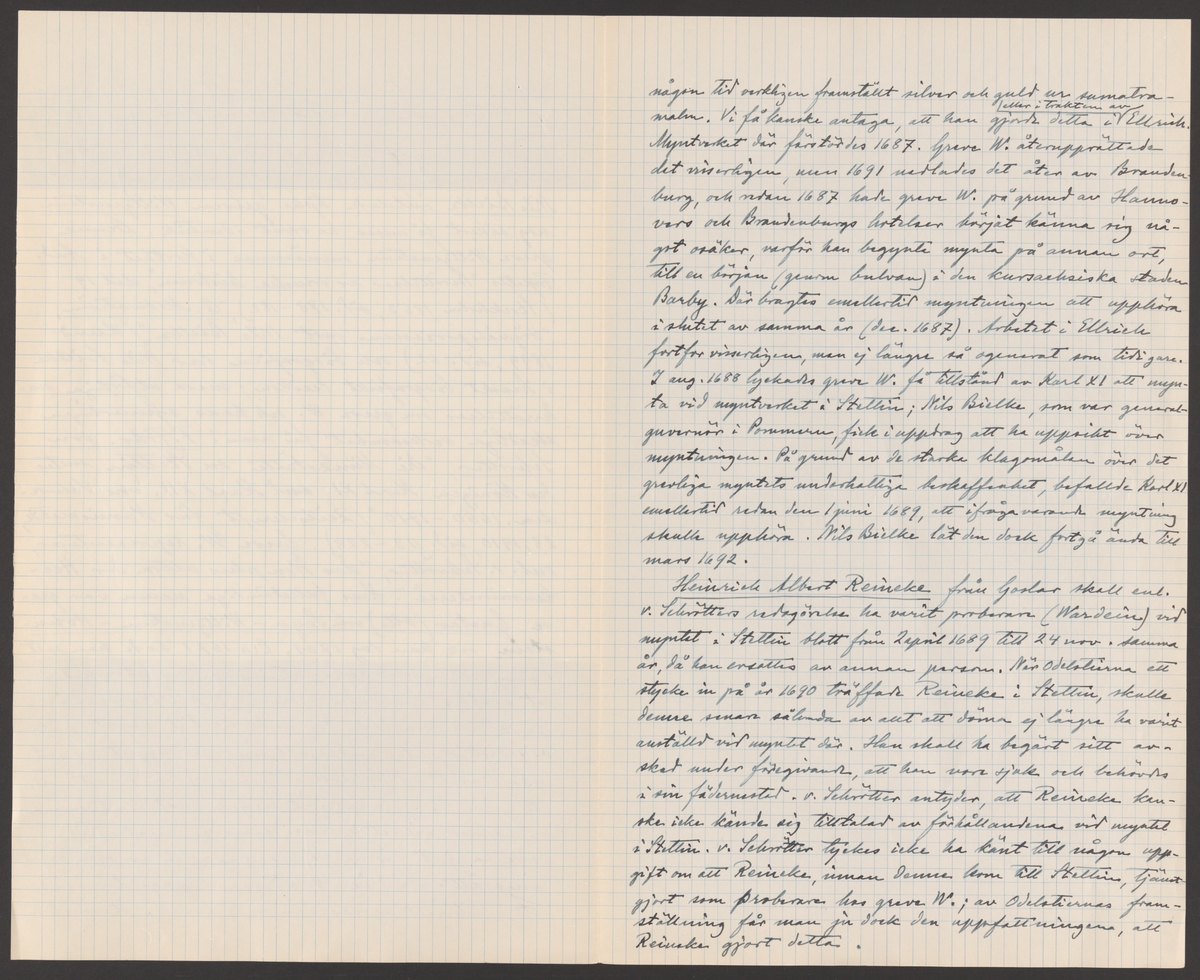 någon tid verkligen framställt silver och guld ur sumatra-
malm. Vi få kanske antaga, att han gjorde detta i Ellrich.
(eller i trakten av
Myntverket där förstördes 1687. Greve W. återupprättade
det visserligen, men 1691 nedlades det åter av Branden-
burg, och redan 1687 hade greve W. på grund av Hanno-
vers och Brandenburgs hotelser börjat känna sig nå-
got osäker, varför han begynte mynta på annan ort,
till en början (genom bulvan) i den kursachsiska staden
Barby. Där bragtes emellertid myntningen att upphöra
i slutet av samma år (dec. 1687). Arbetet i Ellrich
fortfor visserligen, men ej längre så ogenerat som tidigare.
I aug. 1688 lyckades greve W. få tillstånd av Karl XI att myn-
ta vid myntverket i Stettin; Nils Bielke, som var general-
guvernör i Pommern, fick i uppdrag att ha uppsikt över
myntningen. På grund av de starka klagomålen över det
grevliga myntets underhaltiga beskaffenhet, befallde Karl XI
emellertid redan den 1 juni 1689, att ifrågavarande myntning
skulle upphöra. Nils Bielke lät den dock fortgå ända till
mars 1692.
Heinrich Albert Reineke från Goslar skall enl.
v. Schrötters redogörelse ha varit proberare (Wardein) vid
myntet i Stettin blott från 2 april 1689 till 24 nov. samma
år, då han ersattes av annan person. När Odelstierna ett
stycke in på år 1690 träffade Reineke i Stettin, skulle
denne senare således av allt att döma ej längre ha varit
anställd vid myntet där. Han skall ha begärt sitt av-
sked under föregivande, att han vore sjuk och behövdes
i sin fädernestad. v. Schrötter antyder, att Reineke kan-
ske icke kände sig tilltalad av förhållandena vid myntet
i Stettin. v. Schrötter tyckes icke ha känt till någon upp-
gift om att Reineke, innan denne kom till Stettin, tjänst-
gjort som proberare hos greve W.; av Odelstiernas fram-
ställning får man ju dock den uppfattningen, att
Reineke gjort detta.